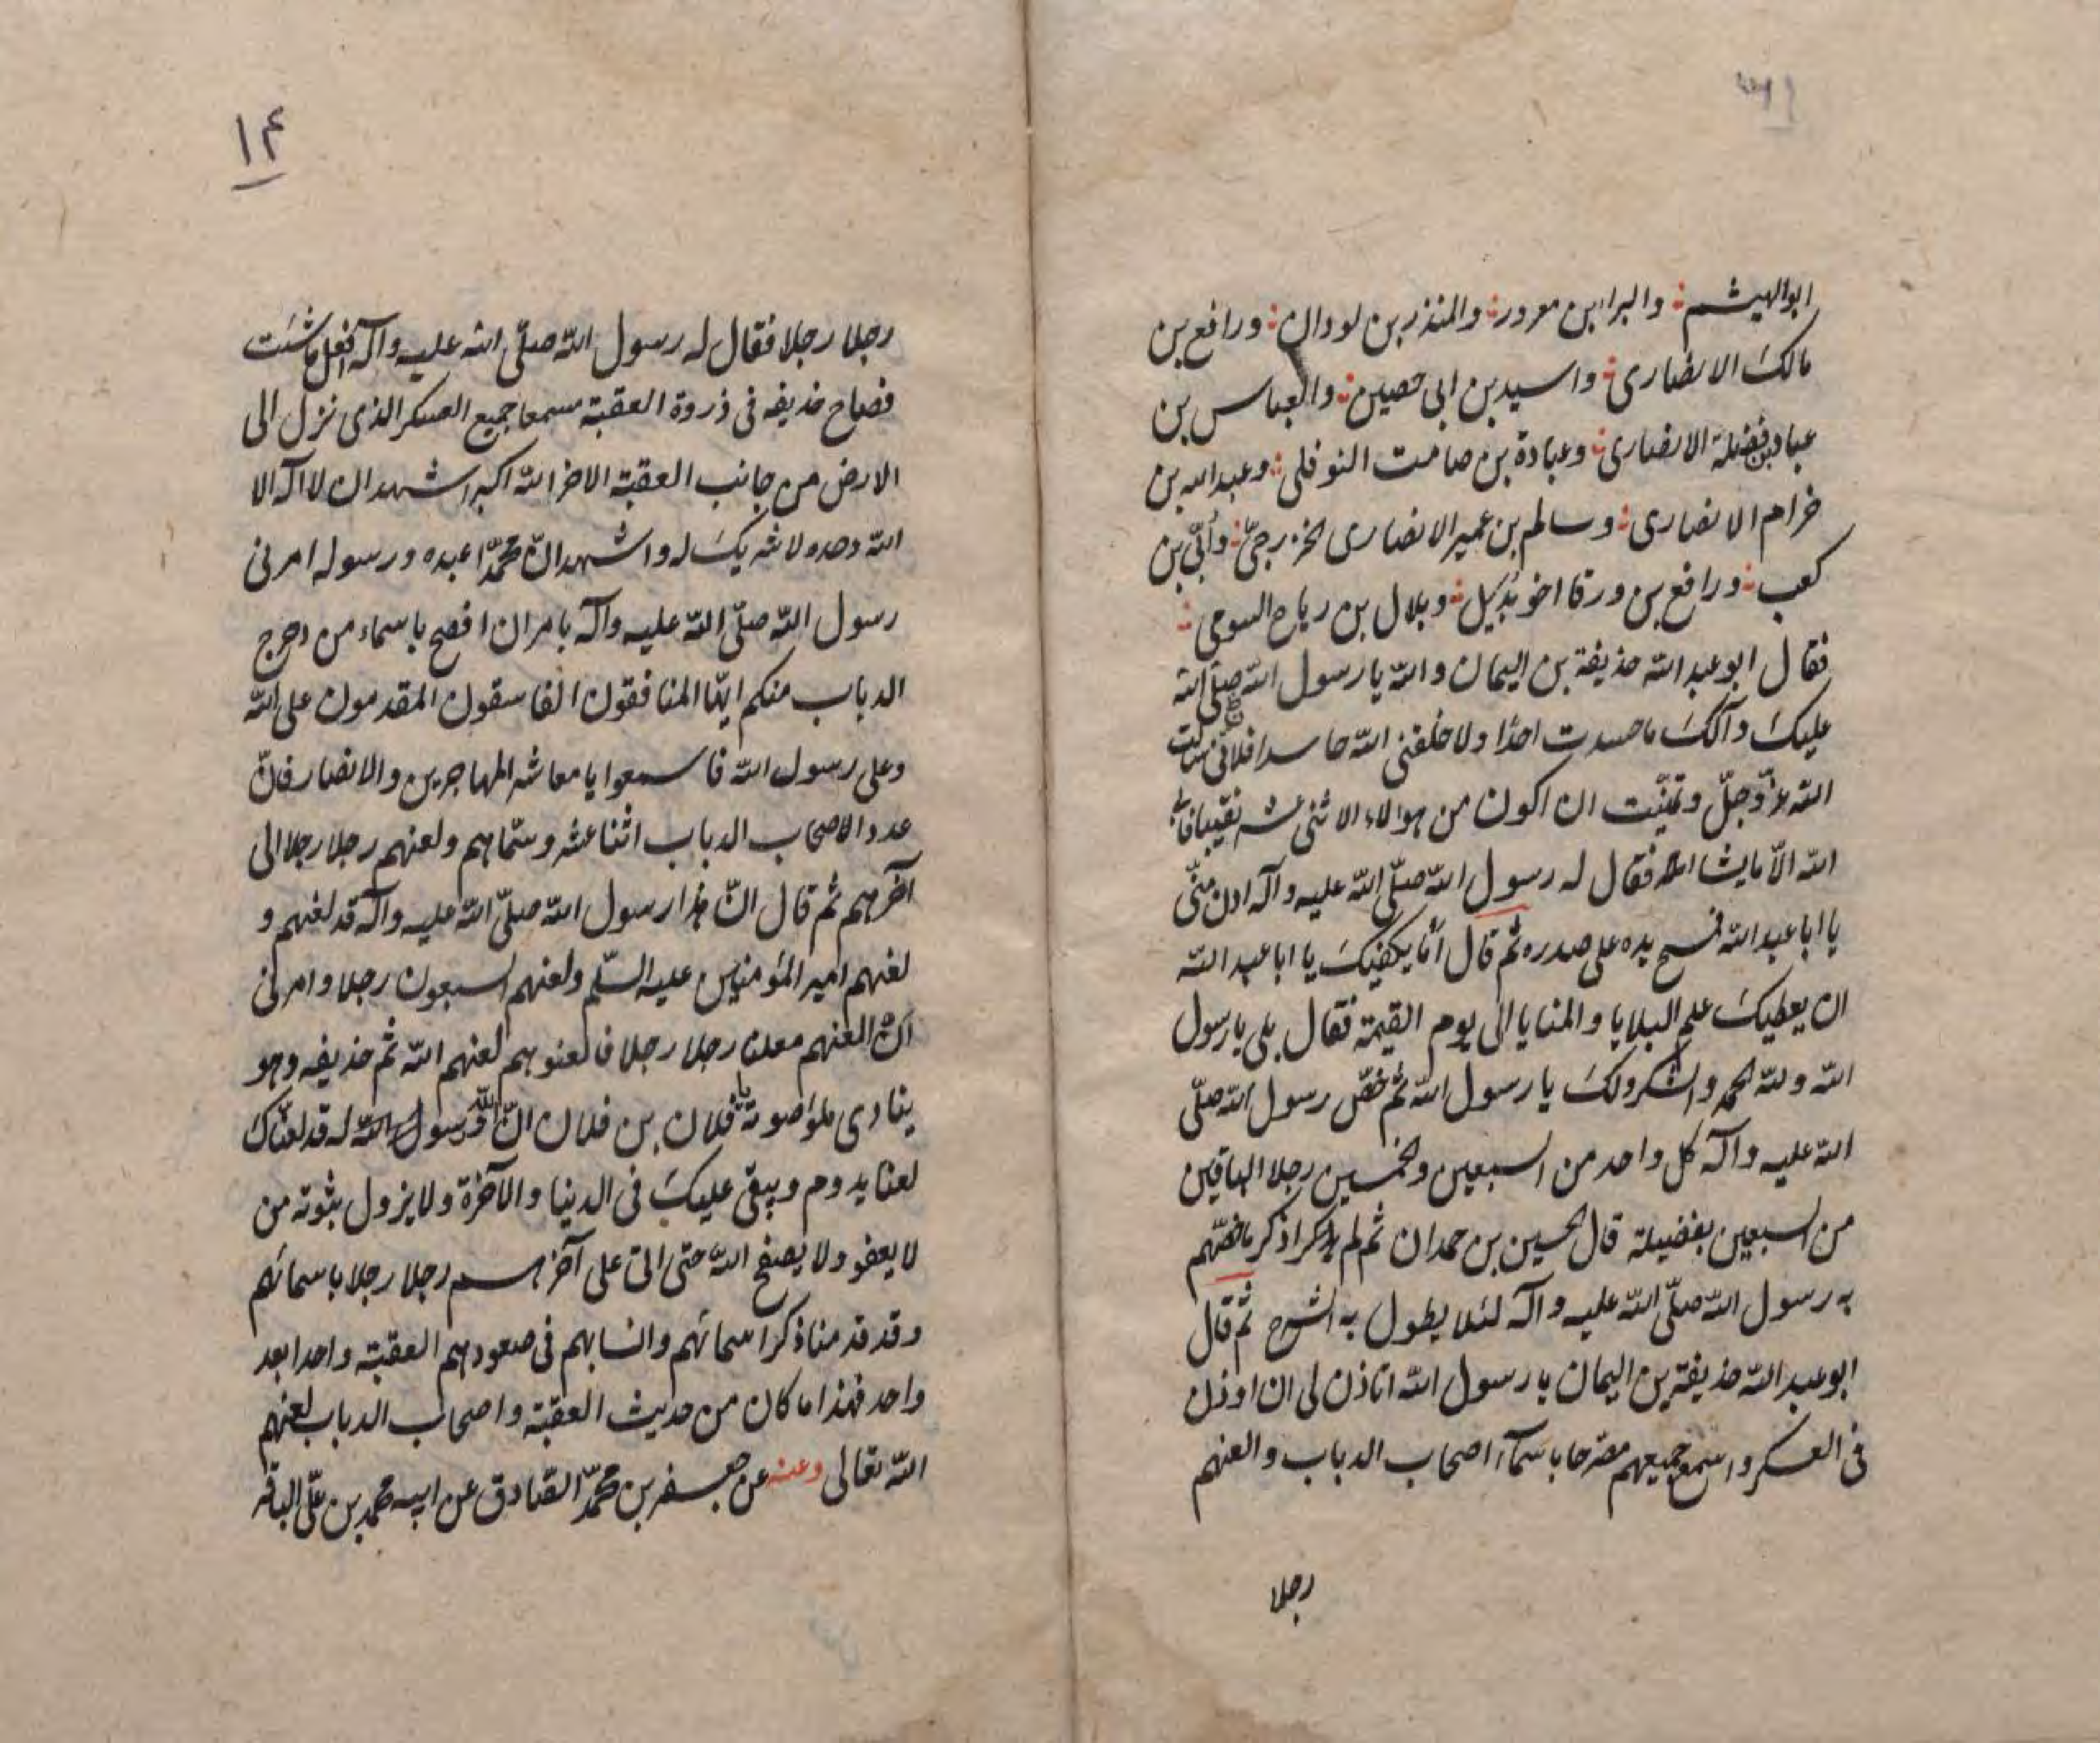 ابو الهيثم والبرا بن معرور والمنذر بن لودان ورافع بن
مالك الانصارى واسيد بن ابى حصين والعباس بن
عباد بن نضلة الانصارى وعبادة بن صامت النوفلى وعبد الله بن
خرام الانصارى وسالم بن عمير الانصارى الخزرجىّ وأبىّ بن
كعب ورافع بن ورقا اخو بديل وبلال بن رياح السوحى
فقال ابو عبد الله حذيفة بن اليمان والله يا رسول الله صلّى الله
عليك وآلك ما حسدت احدا ولا خلقنى الله حاسدا فلانى سالت
الله عزّ وجلّ وتمنّيت ان اكون من هولاء الاثنى عشر نقيبا فابى
الله الّا ما يشا فقال له رسول الله صلّى الله عليه وآله ادن منّى
يا ابا عبد الله فمسح يده على صدره ثم قال اما يكفيك يا ابا عبد الله
ان يعطيك علم البلايا والمنايا الى يوم القيمة فقال بلى يا رسول
الله ولله الحمد والشكر ولك يا رسول الله ثم خصّ رسول الله صلّى
الله عليه وآله كل واحد من السبعين والخمسين رجلا الباقين
من السبعين بفضيلة قال الحسين بن حمدان ثم لم اذكر ما خصّهم
به رسول الله صلّى الله عليه وآله لئلا يطول به الشرح ثم قال
ابو عبد الله حذيفة بن اليمان يا رسول الله اتاذن لى ان اوذن
فى العسكر واسمع جميعهم مصرحا باسمآء اصحاب الدباب والعنهم
رجلا
١٤
رجلا رجلا فقال له رسول الله صلّى الله عليه وآله افعل ما شئت
فصاح حذيفه فى ذروة العقبة سمعا جميع العسكر الذى نزل الى
الارض من جانب العقبة الاخر الله اكبر اشهد ان لا اله الا
الله وحده لا شريك له واشهد انّ محمّدا عبده ورسوله امرنى
رسول الله صلّى الله عليه وآله بامر ان افصح باسماء من دحرج
الدباب منكم ايّها المنافقون الفاسقون المقدمون على الله
وعلى رسول الله فاسمعوا يا معاشر المهاجرين والانصار فانّ
عدد الاصحاب الدباب اثنا عشر وسمّاهم ولعنهم رجلا رجلا الى
آخرهم ثم قال انّ هذا رسول الله صلّى الله عليه وآله قد لعنهم و
لعنهم امير المؤمنين عليه السّلم ولعنهم السبعون رجلا وامرنى
ان العنهم معلنا رجلا رجلا فالعنوهم لعنهم الله ثم حذيفه وهو
ينادى صوته يا فلان بن فلان انّ الله ورسول له قد لعنّاك
لعنا يدوم ويبقى عليك فى الدنيا والآخرة ولا يزول بثوته من
لا يعفو ولا يصفح الله حتى اتى على آخرهم رجلا رجلا باسمائهم
وقد قدمنا ذكر اسمائهم وانسابهم فى صعودهم العقبة واحدا بعد
واحد فهذا ما كان من حديث العقبة واصحاب الدباب لعنهم
الله تعالى وعنه عن جعفر بن محمّد الصّادق عن ابيه محمد بن علىّ الباقر